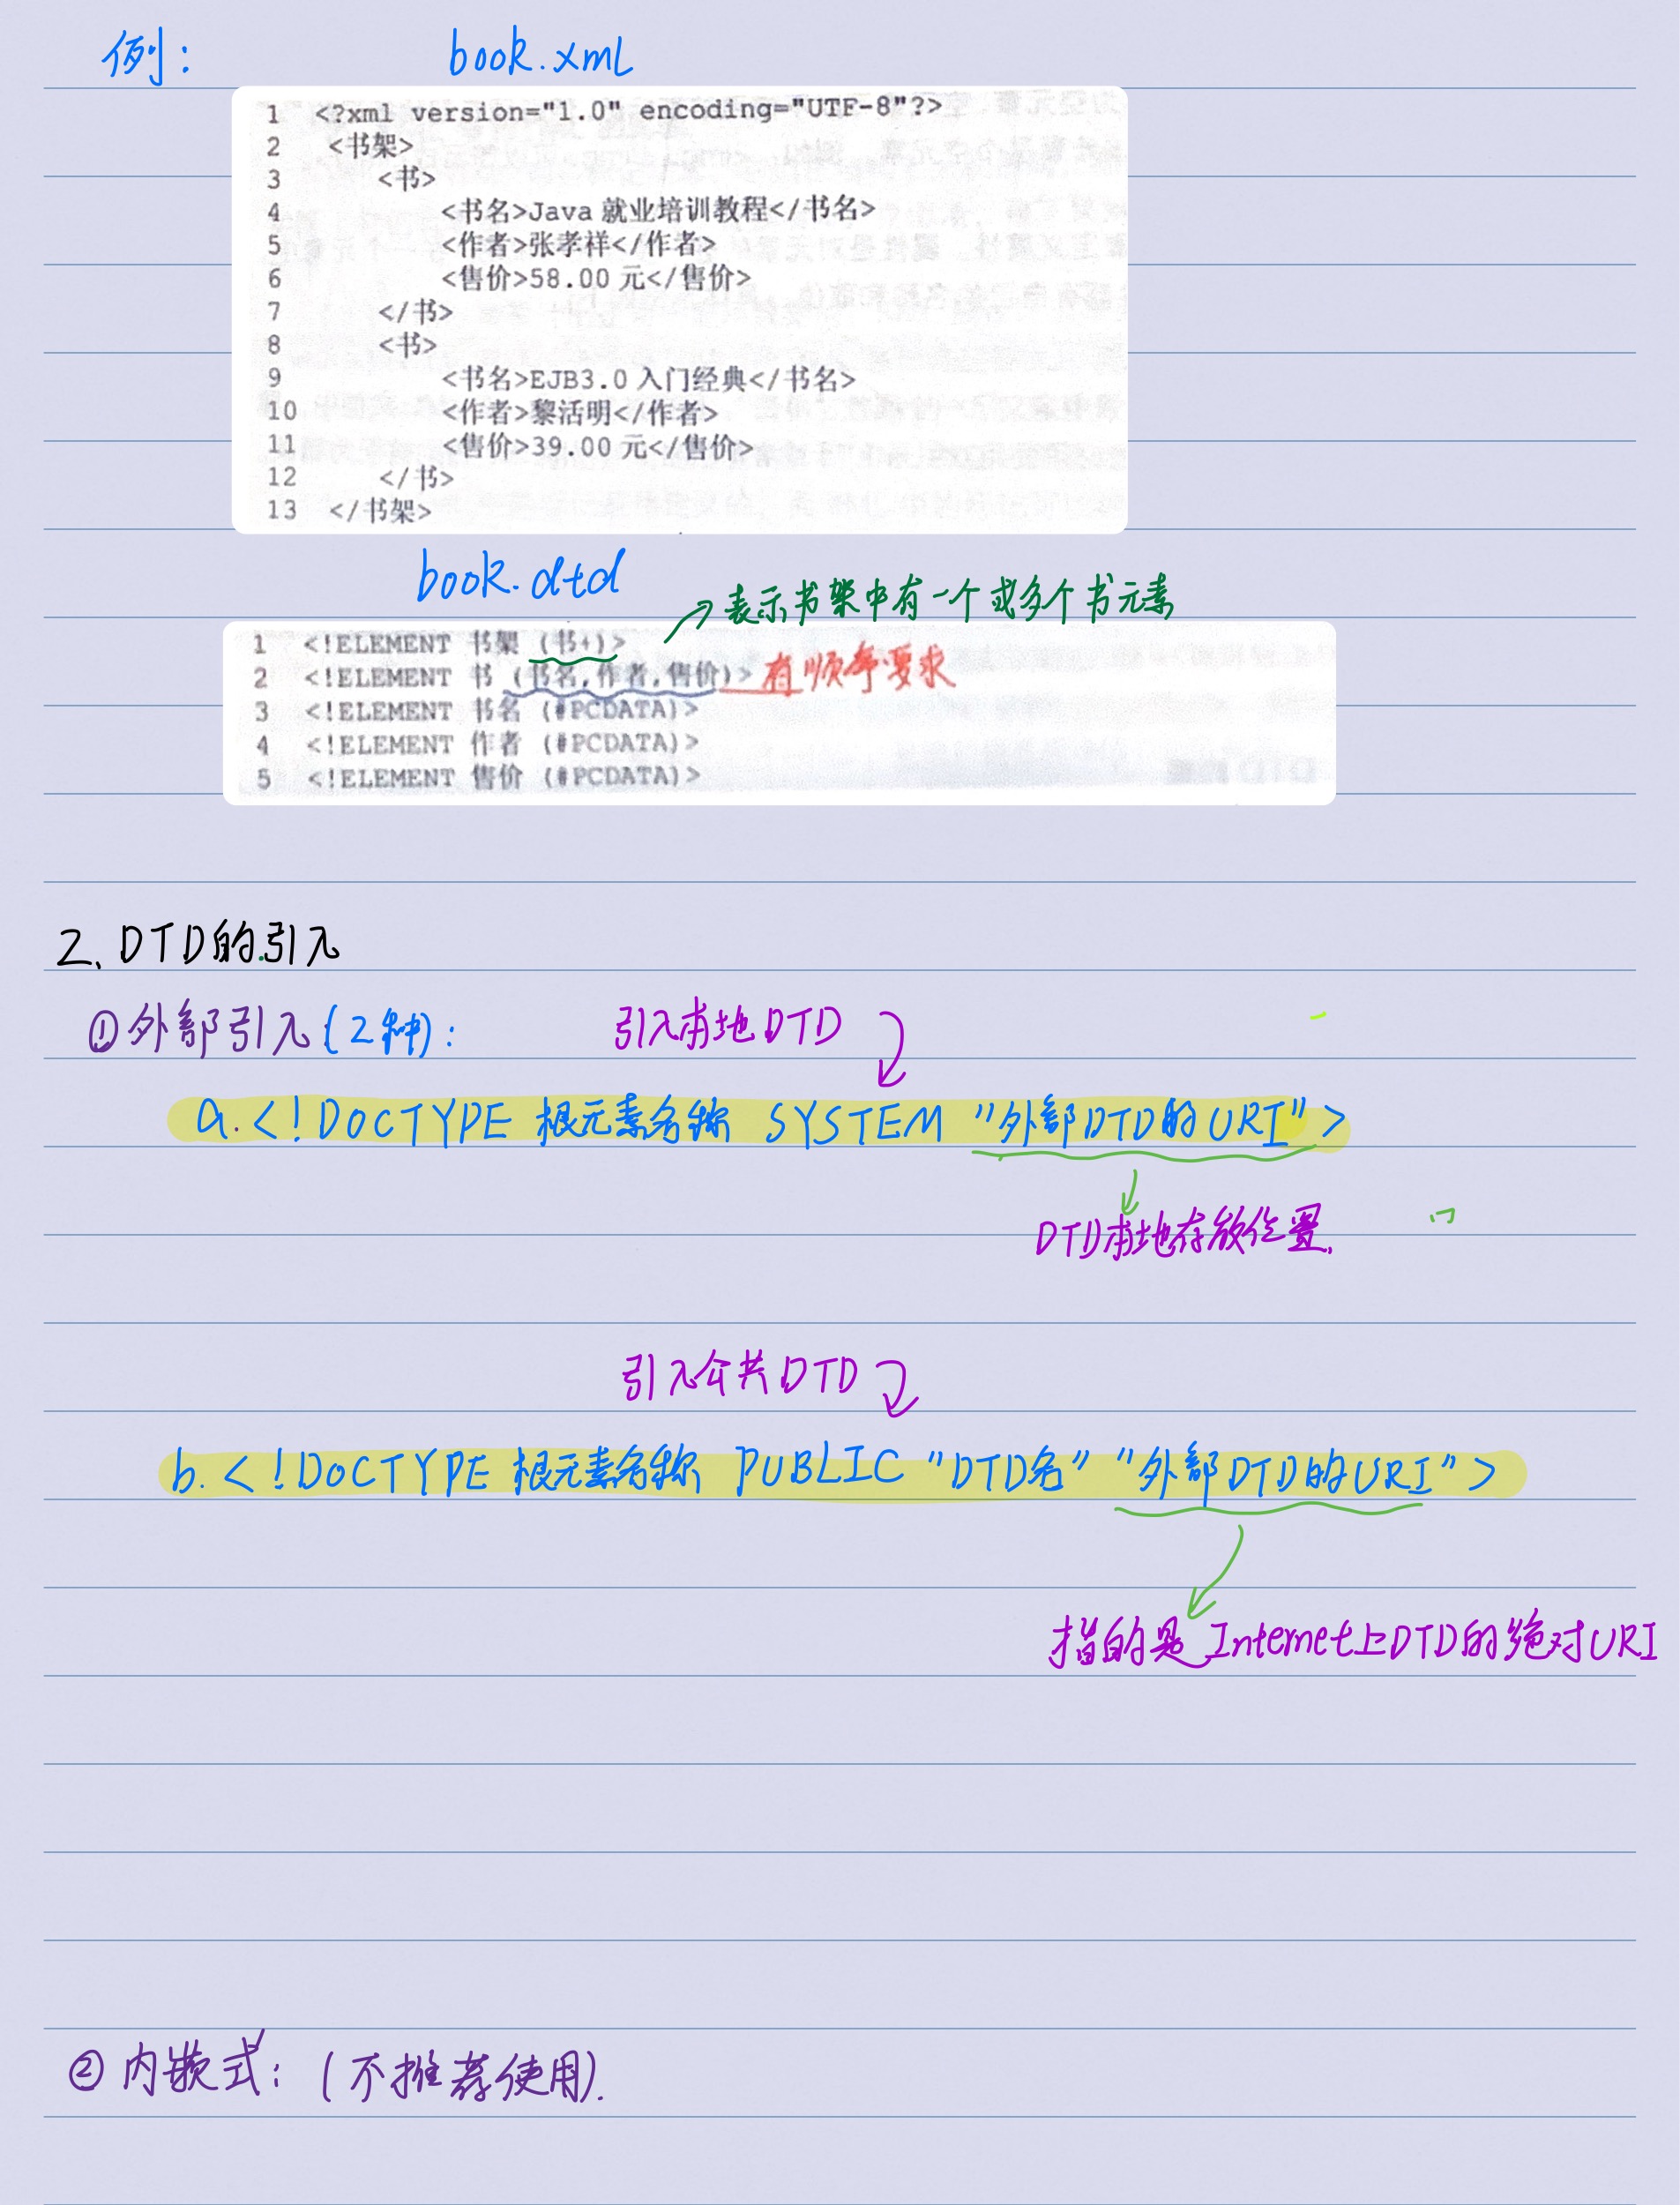 例: book.xml
1 <?xml version="1.0" encoding="UTF-8"?>
2 <书架>
3 <书>
4 <书名>Java 就业培训教程</书名>
5 <作者>张孝祥</作者>
6 <售价>58.00 元</售价>
7 </书>
8 <书>
9 <书名>EJB3.0 入门经典</书名>
10 <作者>黎活明</作者>
11 <售价>39.00 元</售价>
12 </书>
13 </书架>
book.dtd
表示书架中有一个或多个书元素
1 <!ELEMENT 书架 (书+)>
2 <!ELEMENT 书 (书名,作者,售价)> 有顺序要求
3 <!ELEMENT 书名 (#PCDATA)>
4 <!ELEMENT 作者 (#PCDATA)>
5 <!ELEMENT 售价 (#PCDATA)>
2、DTD的引入
①外部引入(2种): 引入本地DTD
a.<!DOCTYPE 根元素名称 SYSTEM "外部DTD的URI">
DTD本地存放位置.
引入公共DTD
b.<!DOCTYPE 根元素名称 PUBLIC "DTD名" "外部DTD的URI">
指的是Internet上DTD的绝对URI
②内嵌式: (不推荐使用).